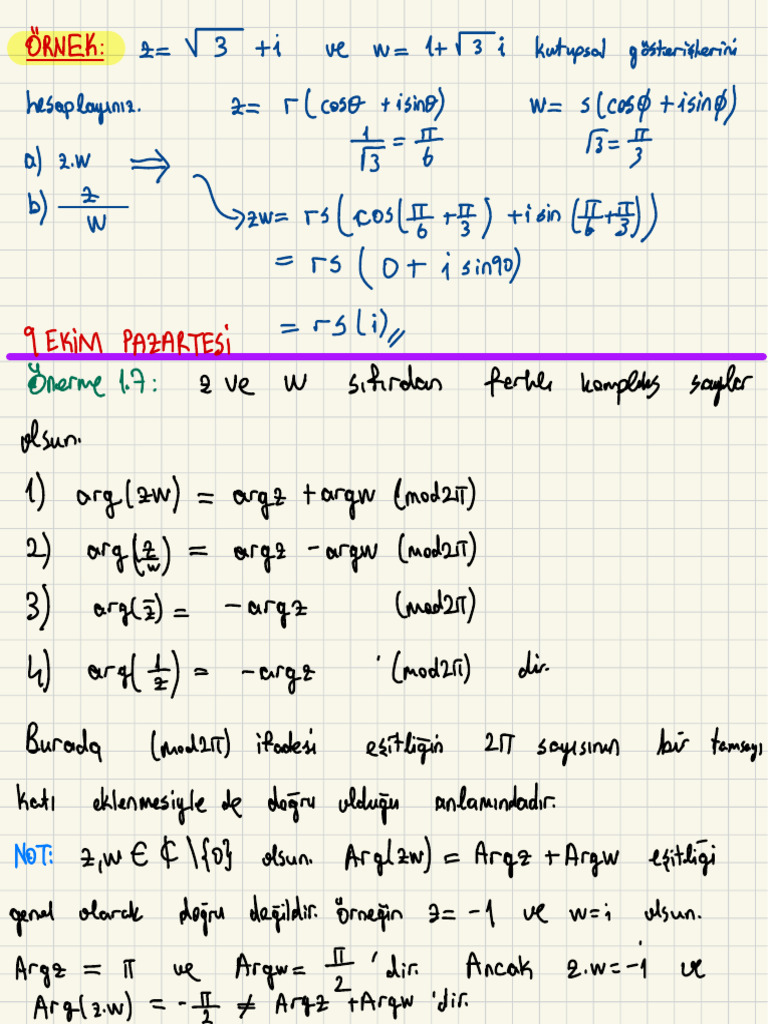 ÖRNEK: z= √3 +i ve w= 1+√3 i kutupsal gösterişlerini
hesaplayınız. z= r(cosθ +isinθ) w= s(cosϕ+isinϕ)
1/√3 = π/6 √3= π/3
a) z.w ⇒
b) z/w
zw= rs(cos(π/6 +π/3) +isin(π/6+π/3))
= rs (0+ i sin90)
= rs(i)//
9 EKİM PAZARTESİ
Önerme 1.7: z ve w sıfırdan farklı kompleks sayılar
olsun.
1) arg(zw) = argz +argw (mod2π)
2) arg(z/w) = argz -argw (mod2π)
3) arg(z̄)= -argz (mod2π)
4) arg(1/z) = -argz (mod2π) dir.
Burada (mod2π) ifadesi eşitliğin 2π sayısının bir tamsayı
katı eklenmesiyle de doğru olduğu anlamındadır.
NOT: z,w ∈ ℂ\{0} olsun. Arg(zw) = Argz +Argw eşitliği
genel olarak doğru değildir. Örneğin z= -1 ve w=i olsun.
Argz = π ve Argw= π/2 'dir. Ancak z.w=-i ve
Arg(z.w) = -π/2 ≠ Argz +Argw 'dir.